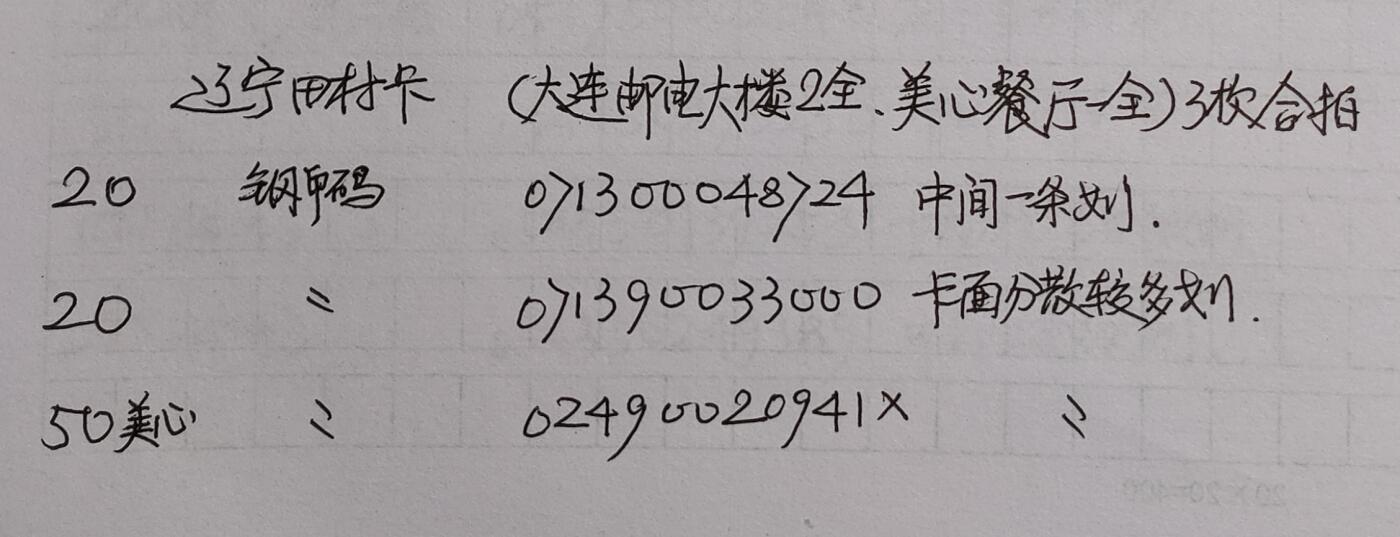 辽宁田村卡 (大连邮电大楼2全、美心餐厅一全)3枚合拍
20 钢印码 071300048724 中间一条划.
20 〃 071390033000 卡面分散较多划.
50美心 〃 02490020941X 〃
20×20=400